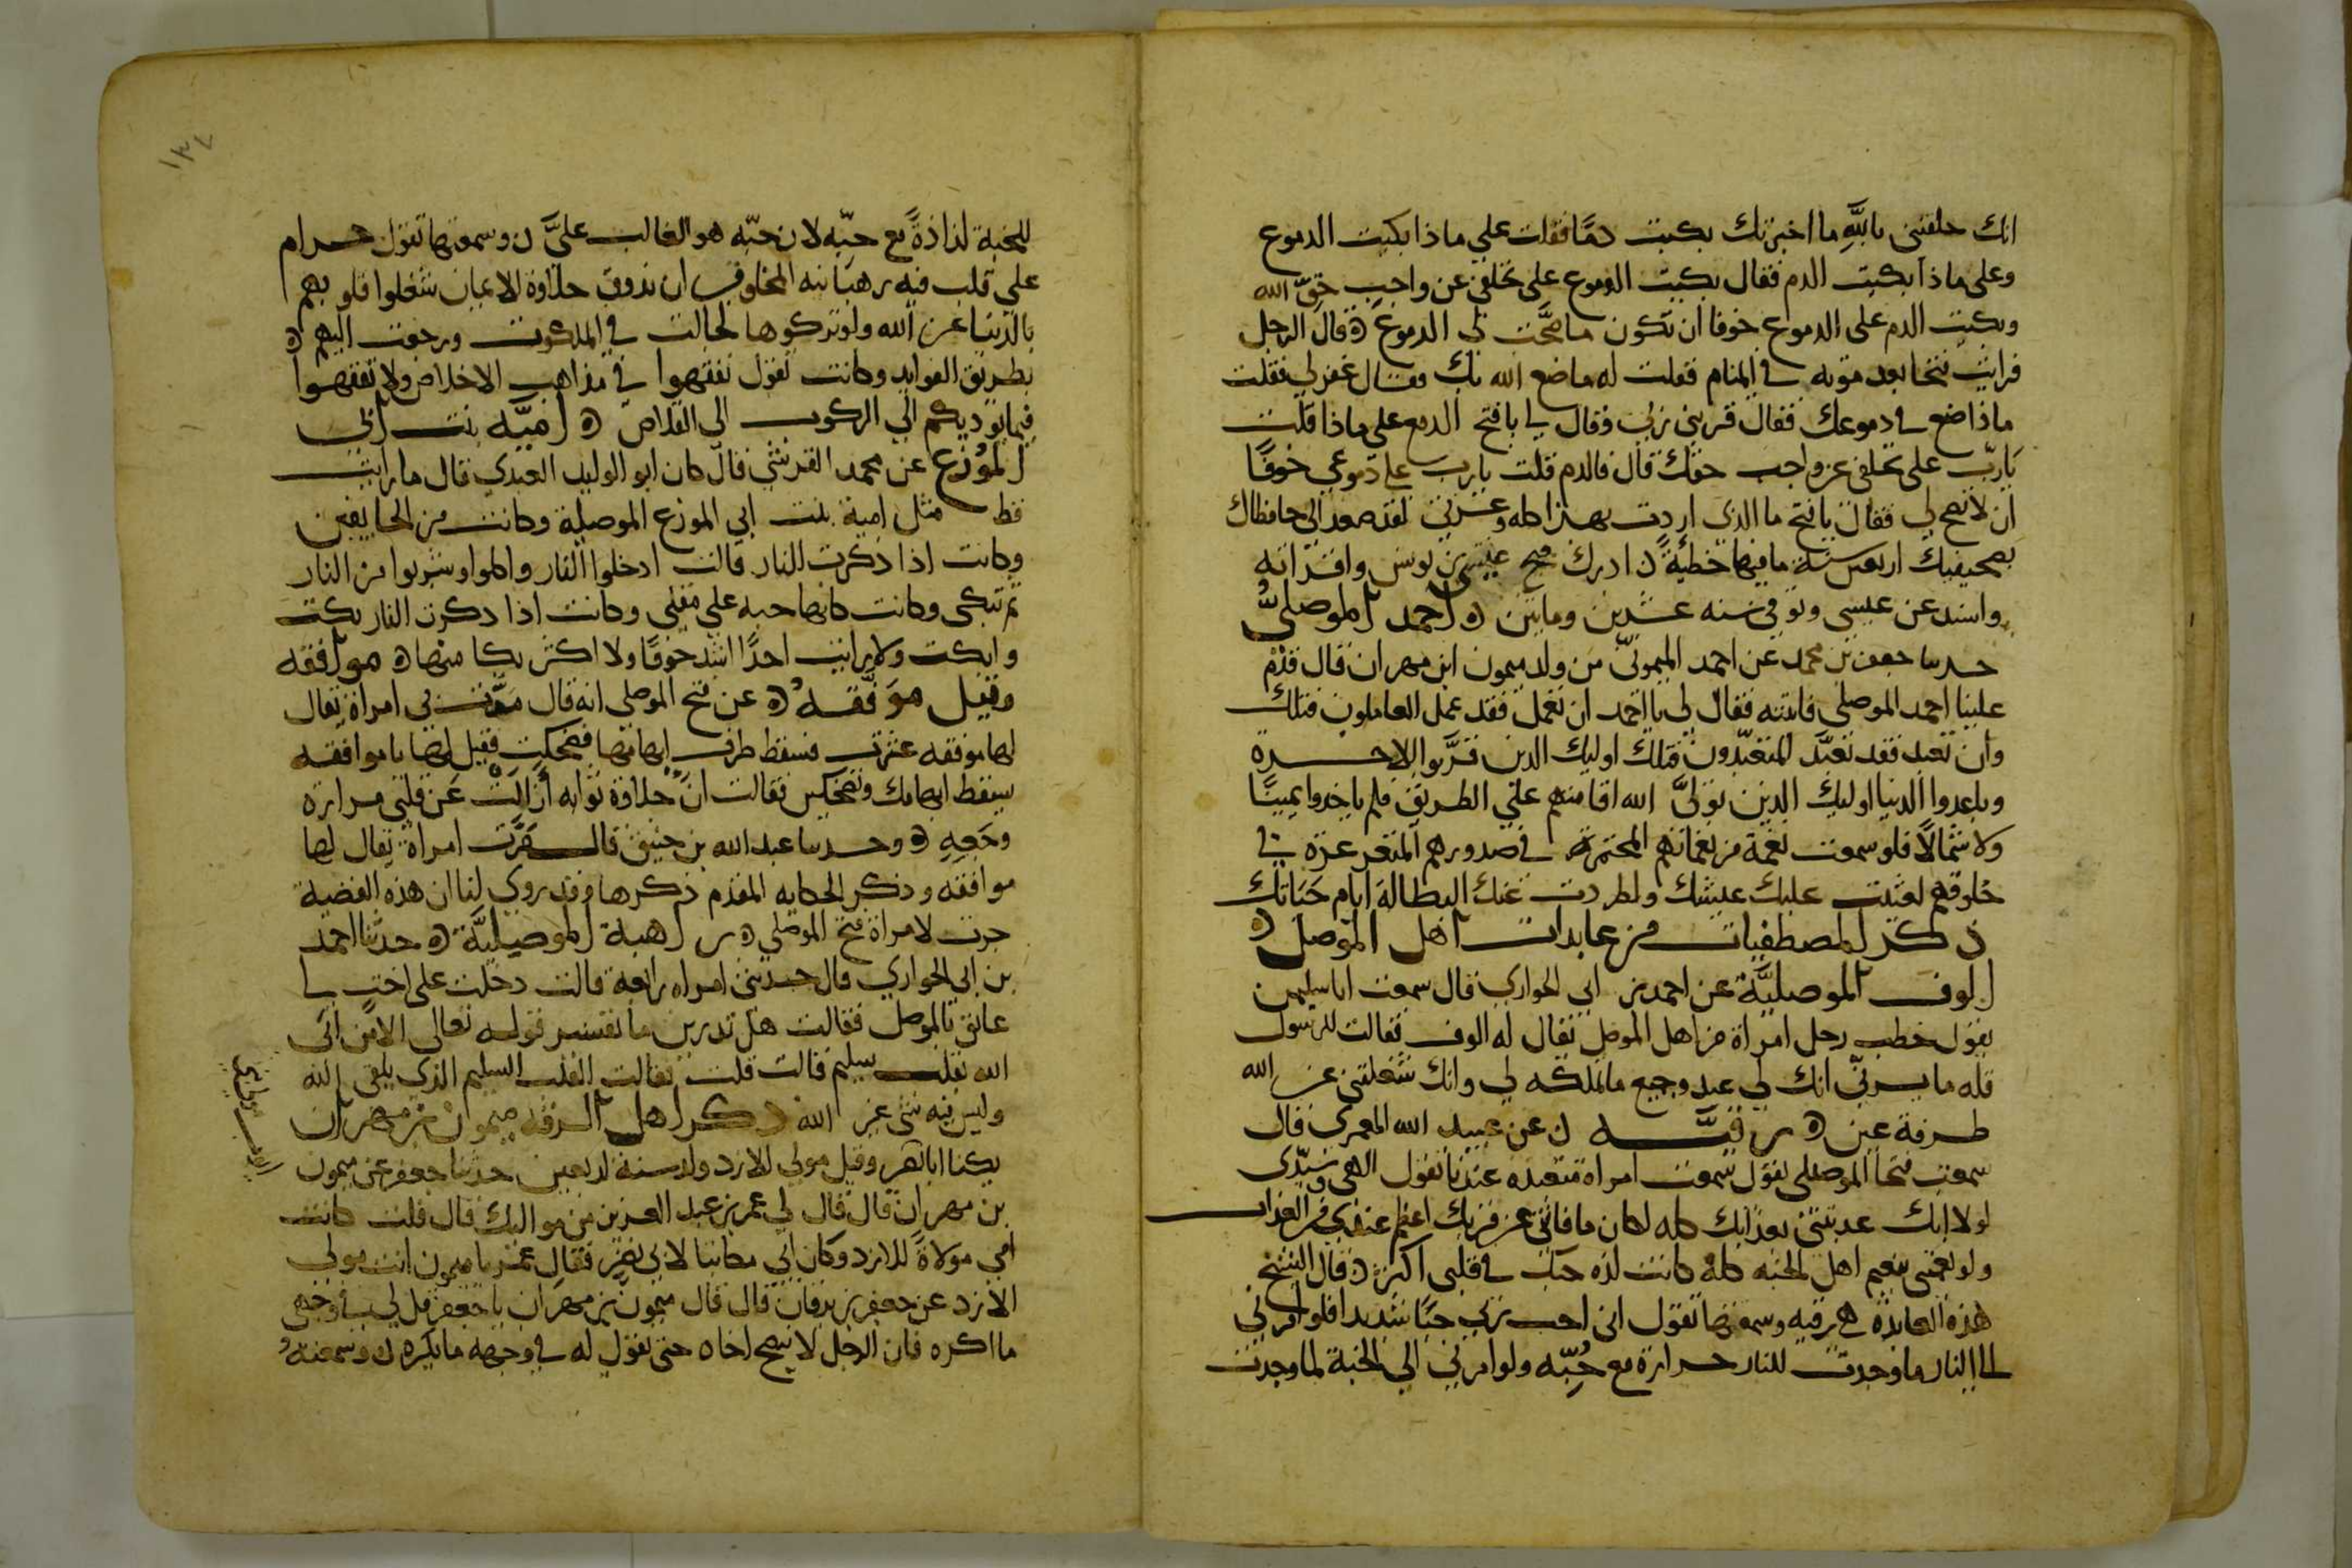 انك حلفتنى بالله ما اخبرتك بكيت دمًا فقلت علي ماذا بكيت الدموع
وعلى ماذا بكيت الدم فقال بكيت الدموع على تخلفى عن واجب حق الله
وبكيت الدم على الدموع خوفا ان تكون ما صحّت لى الدموع ه قال الرجل
فرايت فتحا بعد موته في المنام فقلت له ما صنع الله بك فقال غفر لي فقلت
ماذا صنع في دموعك فقال قربنى ربي وقال لي يا فتح الدمع علي ماذا قلت
يا ربّ على تخلفى عن واجب حقك قال فالدم قلت يا رب على دموعي خوفًا
ان لا تصح لي فقال يا فتح ما الذي اردت بهذا كله وعزتي لقد صعد الى حافظاك
بصحيفتك اربعين سنة ما فيها خطيئة ن ادرك فتح عيسى بن يونس واقرانه
واسند عن عيسى وتوفي سنه عشرين ومايتين ه احمد الموصليُّ
حدثنا جعفر بن محمد عن احمد الميمونيّ من ولد ميمون ابن مهران قال قدم
علينا احمد الموصلي فاتيته فقال لي يا احمد ان تعمل فقد عمل العاملون قبلك
وان تعبد فقد تعبّد المتعبّدون قبلك اوليك الذين قرّبوا الاخرة
وباعدوا الدنيا اوليك الذين تولّى الله اقامتهم على الطريق فلم ياخدوا يمينًا
ولا شمالًا فلو سمعت نغمة من نغماتهم المختمرة في صدورهم المتغرغرة في
حلوقهم لغيّرت عليك عيشك ولطردت عنك البطالة ايام حياتك
ذكر المصطفيات من عابدات اهل الموصل ه
الوف الموصليَّة عن احمد بن ابي الحواري قال سمعت ابا سليمن
يقول خطب رجل امراة من اهل الموصل يقال له الوف فقالت للرسول
قل له ما يسرنيّ انك لي عبد وجميع ما تملكه لي وانك شغلتنى عن الله
طرفة عين ه رقيَّه ن عن عبيد الله المعمرى قال
سمعت فتحا الموصلى يقول سمعت امراة متعبده عندنا تقول الهى وسيّدى
لولا انك عدبتنى بعذابك كله لكان ما فاتنى من قربك اعظم عندي من العذاب
ولو نعمتنى بنعيم اهل الجنه كله كانت لذه حبك في قلبى اكبر ه قال الشيخ
هذه العابدة هي رقيه وسمعتها تقول انى احب ربي حبًا شديدا فلو امر بي
الى النار ما وجدت للنار حرارة مع حُبّه ولو امر بي الي الجنة لما وجدت
١٣٤
للجنة لذاذةً مع حبّه لان حبّه هو الغالب عليَّ ن وسمعتها تقول حرام
علي قلب فيه رهبانيه المخلوقين ان يذوق حلاوة الايمان شغلوا قلوبهم
بالدنيا عن الله ولو تركوها لجالت في الملكوت ورجعت اليهم
بطريق الفوايد وكانت تقول تفقهوا في مذاهب الاخلاص ولا تفقهوا
فيما يوديكم الي الركوب الى القلاص ه اميَّه بنت ابى
المُوَزع عن محمد القرشي قال كان ابو الوليد العبدي قال ما رايت
قط مثل امية بنت ابي الموزع الموصلية وكانت من الخايفين
وكانت اذا ذكرت النار قالت ادخلوا النار واكلوا وشربوا من النار
ثم تبكى وكانت كانها حبه علي مقلى وكانت اذا ذكرت النار بكت
وابكت ولا رايت احدًا اشد خوفًا ولا اكثر بكا منها ه موافقه
وقيل موَفَّقه ه عن فتح الموصلي انه قال مرَّت بي امراة يقال
لها موفقه عثرت فسقط ظفر ابهامها فضحكت فقيل لها يا موافقه
يسقط ابهامك وتضحكين فقالت انّ حلاوة ثوابه ازالت عن قلبي مرارة
وجَعِهِ ه وحدثنا عبد الله بن خبيق قال مرَّت امراة يقال لها
موافقه وذكر الحكايه المقدم ذكرها وقد روي لنا ان هذه القضية
جرت لامراة فتح الموصلي ه راهبة الموصيليَّة ه حدّثنا احمد
بن ابي الحواري قال حدثتني امراه رابعة قالت دخلت على اختٍ لنا
عاتق بالموصل فقالت هل تدرين ما تفسير قوله تعالى الا من اتى
الله بقلب سليم قالت قلت فقالت القلب السليم الذي يلقى الله
وليس فيه شي غير الله ذكر اهل الرقه ميمون بن مهران
يكنا ابا ... وقيل مولي للازد ولد سنة اربعين حدثنا جعفر عن ميمون
بن مهران قال قال لي عمر بن عبد العزيز من مواليك قال قلت كانت
امي مولاة للازد وكان ابي مكاتبا لابي نصر فقال عمر يا ميمون انت مولى
الازد عن جعفر بن برقان قال قال ميمون بن مهران يا جعفر قل لي في وجهي
ما اكره فان الرجل لا ينصح اخاه حتى يقول له في وجهه ما يكره ن وسمعته